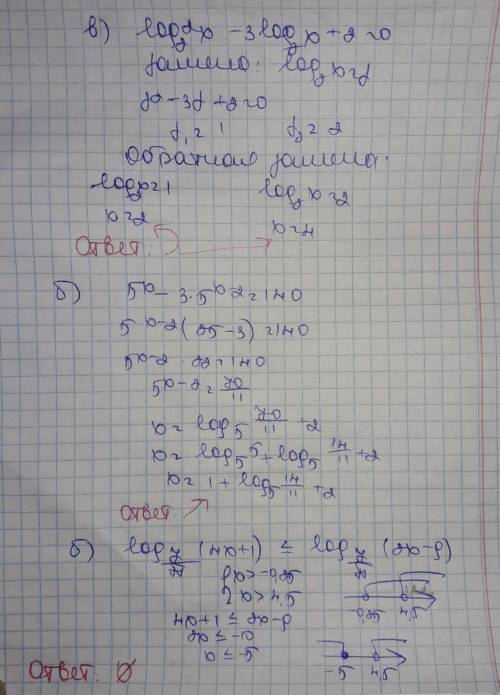 в) log₂²x - 3log₂x + 2 = 0
Замена: log₂x = y
y² - 3y + 2 = 0
y₁ = 1 y₂ = 2
Обратная замена:
log₂x = 1 log₂x = 2
x = 2 x = 4
Ответ:
б) 5ˣ - 3·5ˣ⁻² = 140
5ˣ⁻²(25-3) = 140
5ˣ⁻² · 22 = 140
5ˣ⁻² = 70/11
x = log₅ 70/11 + 2
x = log₅5 + log₅ 14/11 + 2
x = 1 + log₅ 14/11 + 2
Ответ
б) (4x+1) ≤ (2x-9)
x > -0,25
x > 4,5
-0,25 4,5
4x+1 ≤ 2x-9
2x ≤ -10
x ≤ -5
-5 4,5
Ответ: ∅